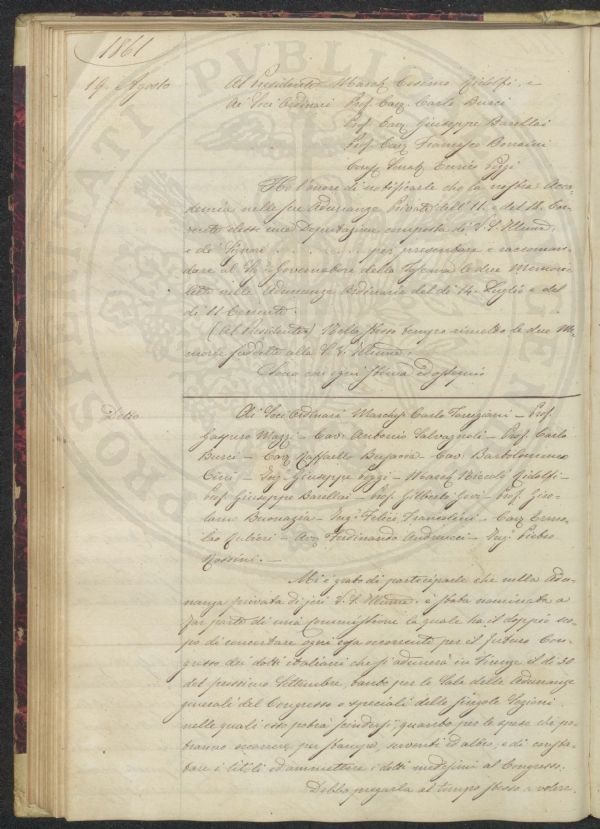 1861
19. Agosto
Al Presidente March. Cosimo Ridolfi. e
Ai Soci Ordinari Prof. Cav. Carlo Burci
Prof. Cav. Giuseppe Barellai
Prof. Cav. Francesco Bonaini
Conte Enrico
Ho l'onore di notificarle che la nostra Acca-
demia nelle sue Adunanze Private dell' 11. e del 18. Cor-
rente elesse una Deputazione composta di V. S. Illma.
e de' Signori . . . . . . . . . per presentare e raccoman-
dare al Governatore della Toscana le due Memorie
lette nelle Adunanze Ordinarie del dì 14. Luglio e del
dì 11 Corrente.
(Al Presidente) Nello stesso tempo rimetto le due Me-
morie suddette alla V. S. Illma.
Sono con ogni stima ed ossequio
Detto
Ai Soci Ordinari March. Carlo Torrigiani – Prof.
Gaspero Mazzi – Cav. Antonio Salvagnoli – Prof. Carlo
Burci – Cav. Raffaello Busacca – Cav. Bartolommeo
Cini – Ing. Giuseppe Poggi – March. Niccolò Ridolfi –
Prof. Giuseppe Barellai – Prof. Gilberto Govi – Prof. Giro-
lamo Buonazia – Ing. Felice Francolini – Cav. Ermo-
lao Rubieri – Avv. Ferdinando Andreucci – Ing. Pietro
Rossini. –
Mi è grato di parteciparle che nella Adu-
nanza privata di jeri V. S. Illma. è stata nominata a
far parte di una Commissione la quale ha il doppio sco-
po di concertare ogni cosa occorrente per il futuro Con-
gresso dei dotti italiani che si adunerà in Firenze il dì 30
del prossimo Settembre, tanto per le Sale delle Adunanze
generali del Congresso o speciali delle singole Sezioni
nelle quali esso potrà scindersi; quanto per le spese che po-
tranno occorrere per stampe, serventi ed altro; e di consta-
tare i titoli ed ammettere i dotti medesimi al Congresso.
Debbo pregarla al tempo stesso a volere